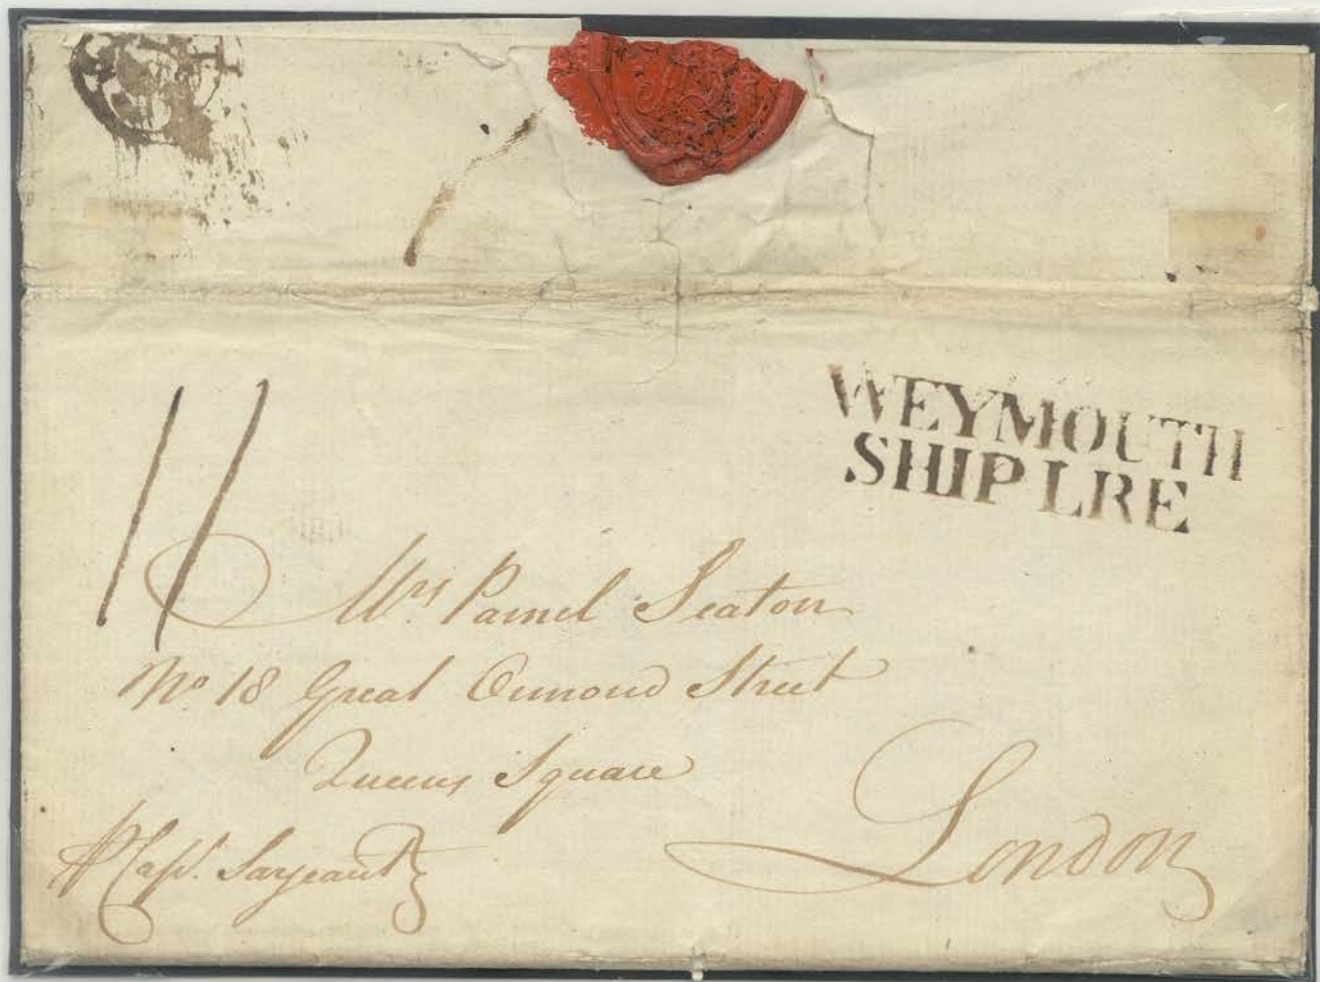 WEYMOUTH
SHIP LRE
11
Mrs. Parnel Seaton
No. 18 Great Ormond Street
Queens Square
London
Capt. Sargeant